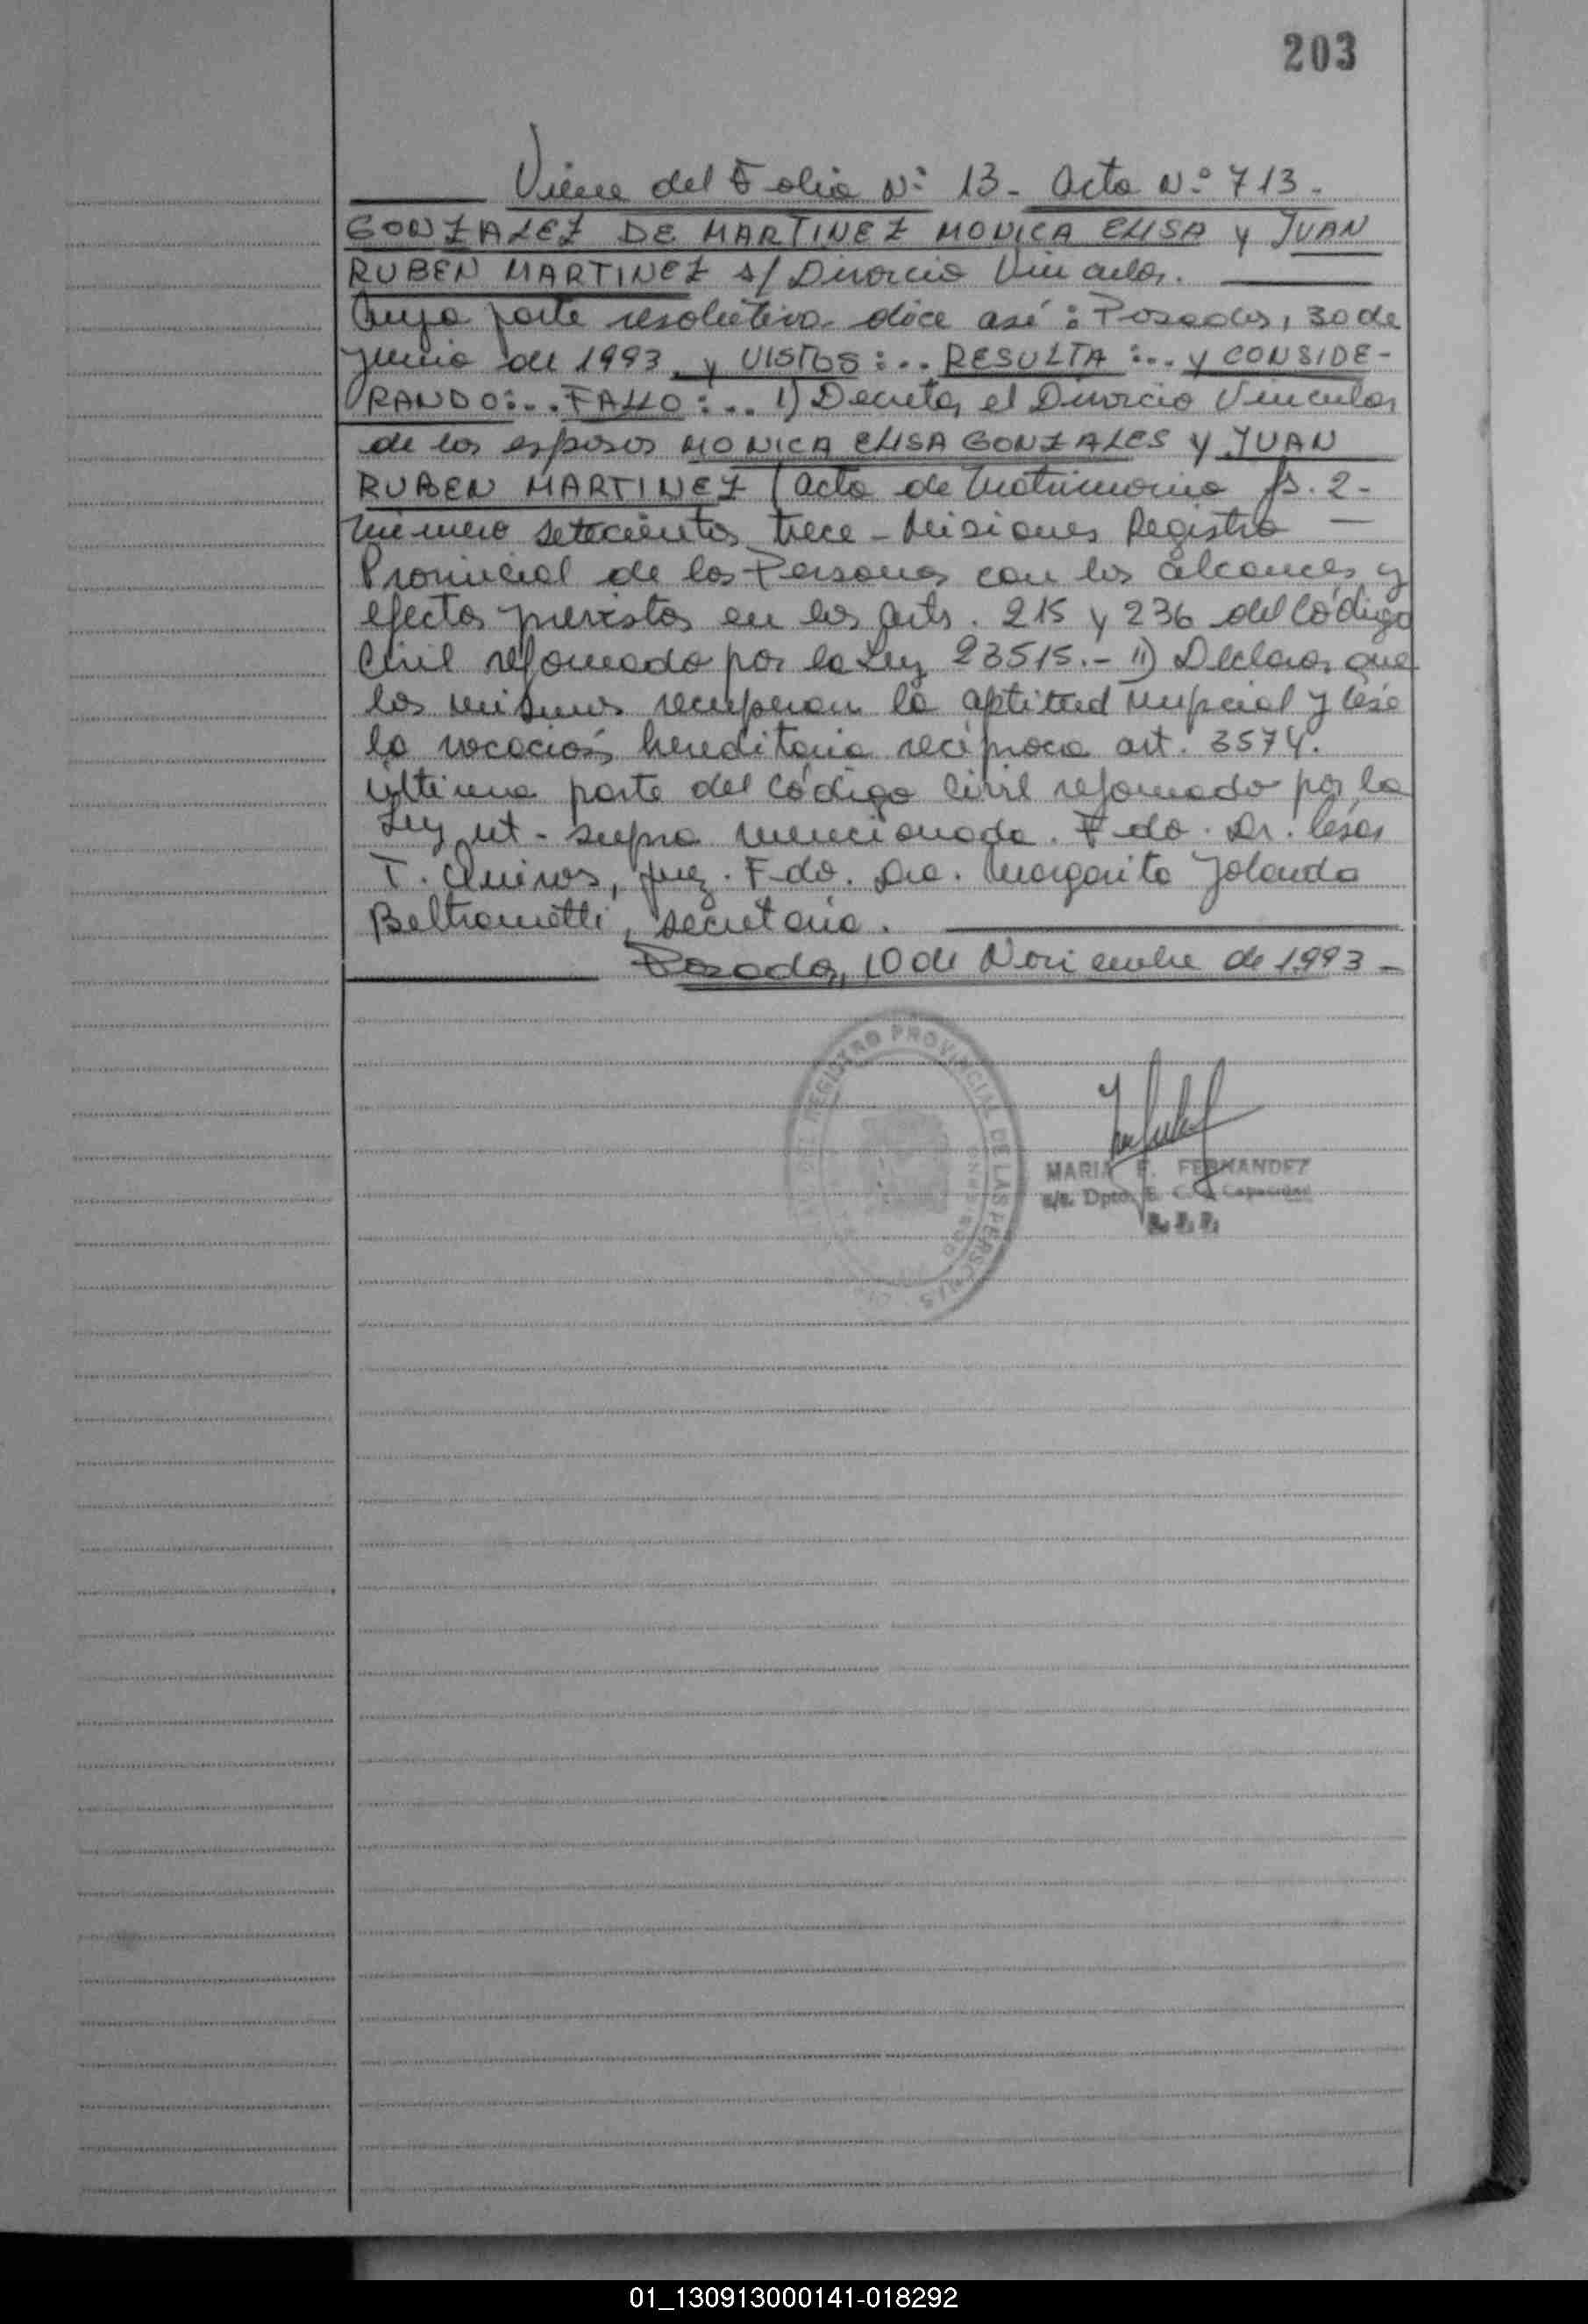 203
Viene del Folio Nº 13- Acta Nº 713-
GONZALEZ DE MARTINEZ MONICA ELISA y JUAN
RUBEN MARTINEZ s/ Divorcio Vincular.
Cuya parte resolutiva dice así: Posadas, 30 de
junio de 1993 y VISTOS:.. RESULTA:... y CONSIDE-
RANDO:.. FALLO:.. I) Decretar el Divorcio Vincular
de los esposos MONICA ELISA GONZALES y JUAN
RUBEN MARTINEZ (acta de Matrimonio fs. 2-
número setecientos trece - Misiones Registro
Provincial de las Personas con los alcances y
efectos previstos en los arts. 215 y 236 del Código
Civil reformado por la Ley 23515.- II) Declarar que
los mismos recuperan la aptitud nupcial y cesa
la vocación hereditaria recíproca art. 3574.
última parte del Código Civil reformado por la
Ley ut-supra mencionada. Fdo. Dr. César
T. , Juez. Fdo. Dra. Margarita Yolanda
Beltrametti, secretaria.
Posadas, 10 de Noviembre de 1993-
REGISTRO PROVINCIAL DE LAS PERSONAS
MARIA E. FERNANDEZ
a/c. Dpto. E. C. y Capacidad
R. P. P.
01_130913000141-018292